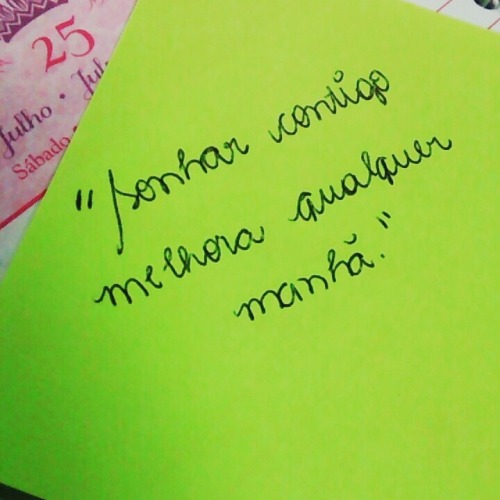 25
Julho · Jul
Sábado
"Sonhar contigo
melhora qualquer
manhã."